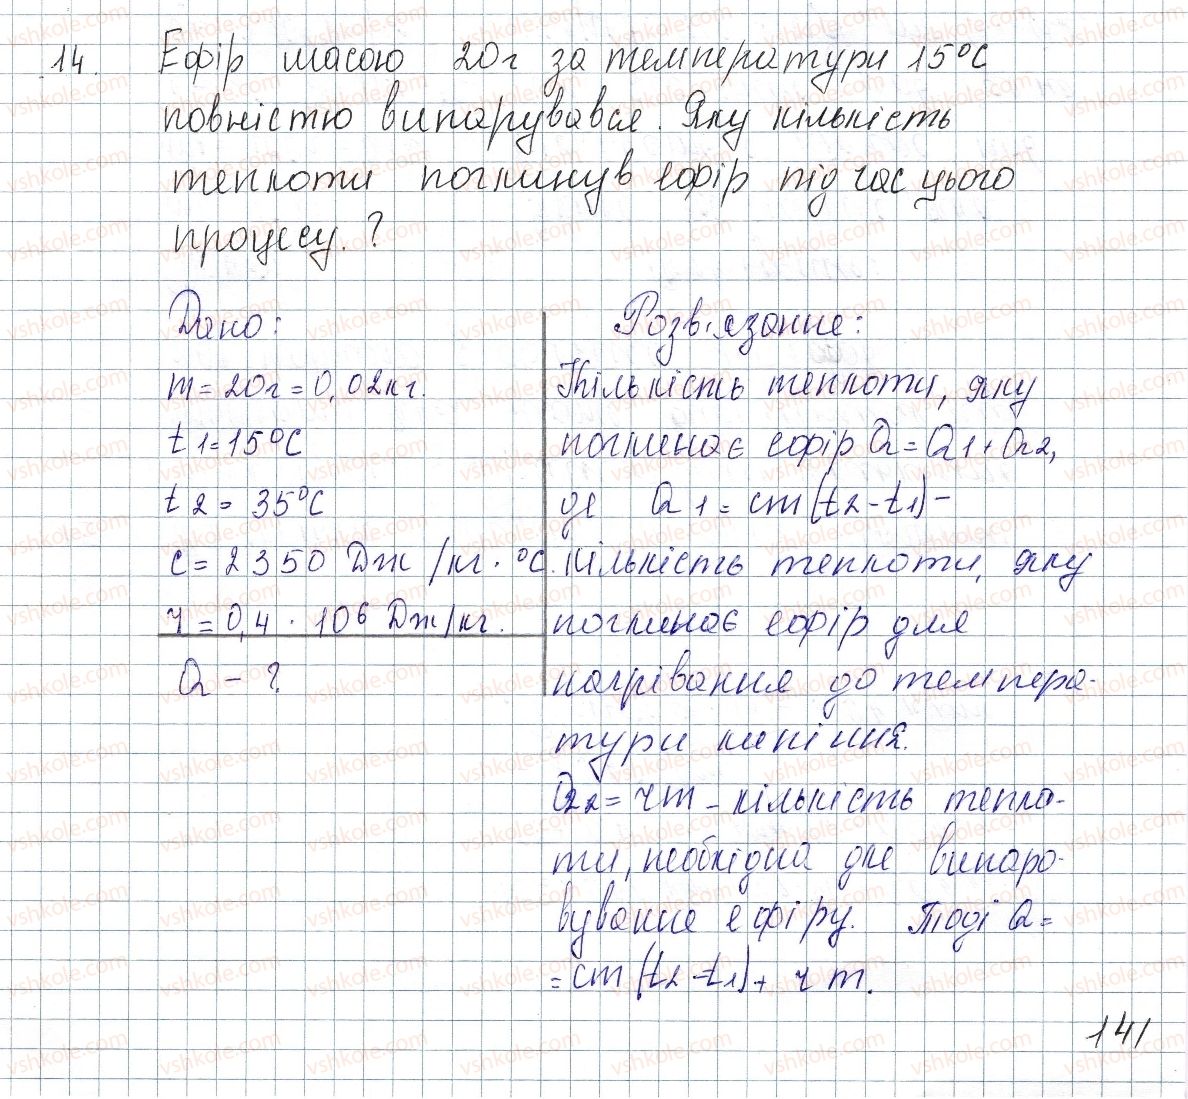 14. Ефір масою 20г за температури 15°С
повністю випарувався. Яку кількість
теплоти поглинув ефір під час цього
процесу.?
Дано:
m = 20г = 0,02кг.
t1=15°С
t2 = 35°С
c = 2350 Дж/кг·°С.
r = 0,4 · 10⁶ Дж/кг.
Q - ?
Розв'язання:
Кількість теплоти, яку
поглинає ефір Q = Q1 + Q2,
де Q1 = cm(t2-t1) -
кількість теплоти, яку
поглинає ефір для
нагрівання до темпера-
тури кипіння.
Q2 = rm - кількість тепло-
ти, необхідна для випаро-
вування ефіру. Тоді Q =
= cm(t2-t1) + rm.
141